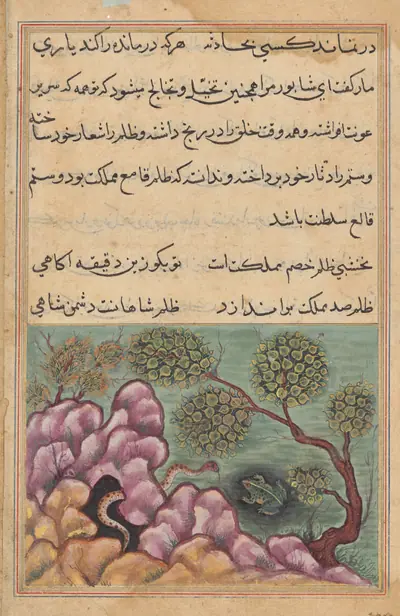 در نماند کسی بحادثه    هرکه درمانده را کند یاری
مار کفت ای شابور مرا همچنین تخیل و تخالج میشود که تو همه که سر بر
عونت افراشته و همه وقت خلق را در رنج داشته و ظلم را شعار خود ساخته
و ستم را دثار خود پرداخته و ندانسته که ظلم قامع مملکت بود و ستم
قالع سلطنت باشد
نخشبی ظلم خصم مملکت است    تو بکوزین دقیقه اکاهی
ظلم صد مملکت براندازد    ظلم شاهانست دشمن شاهی